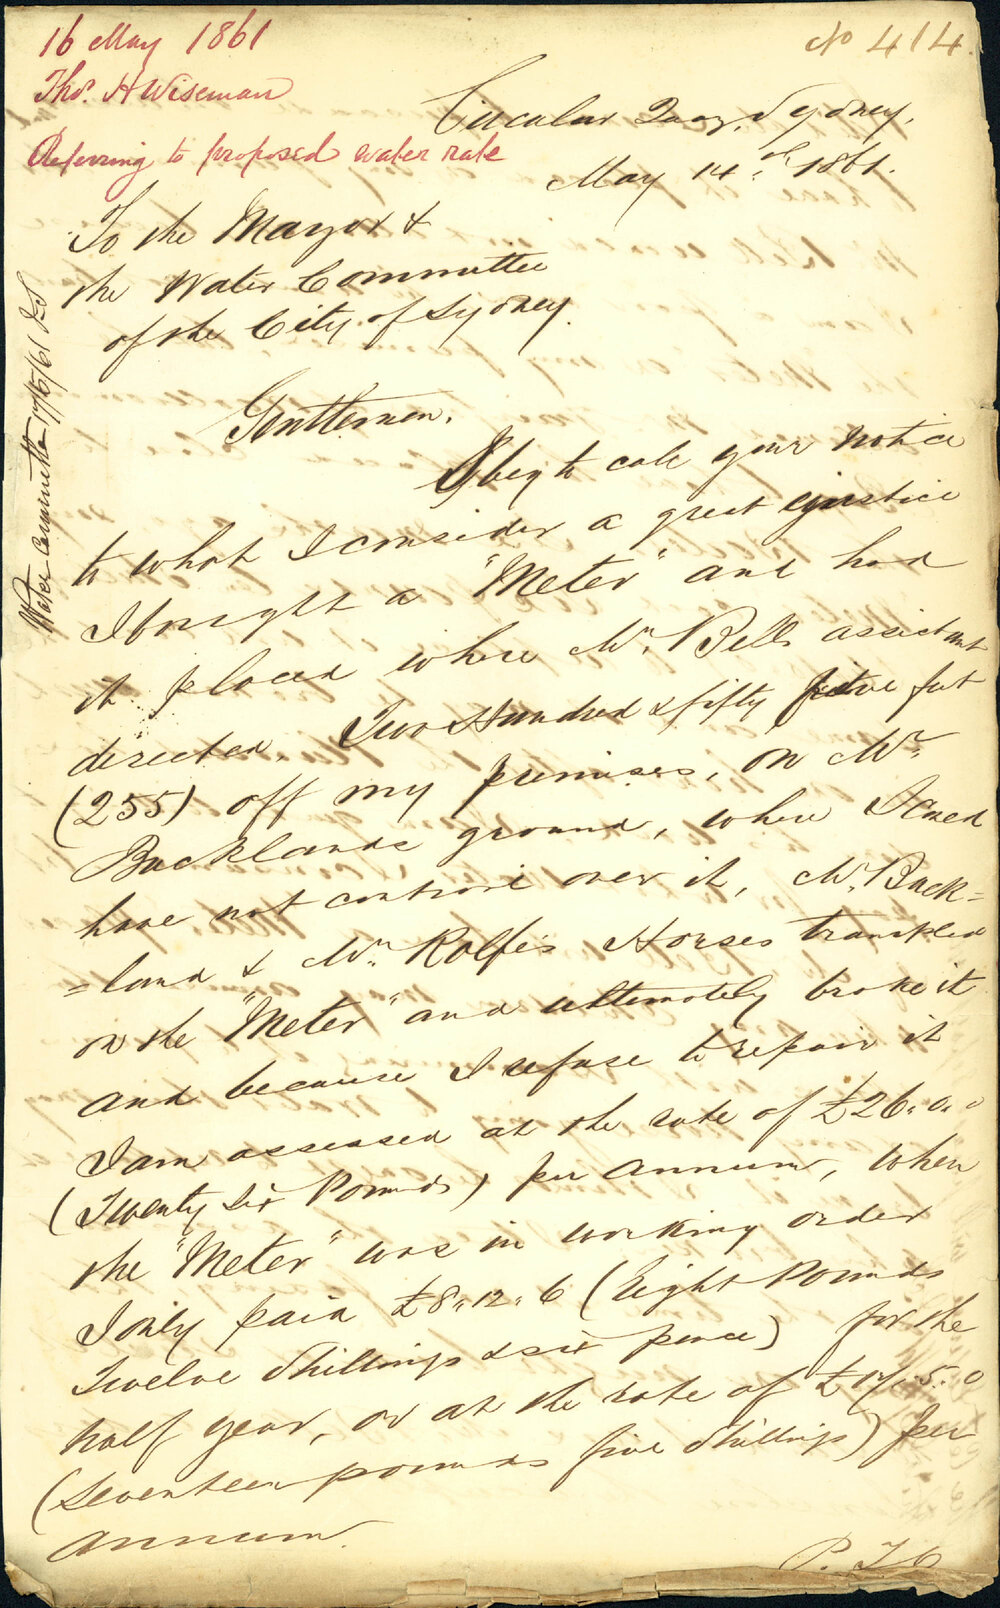 16 May 1861
Thos. H Wiseman
Referring to proposed water rate
No 414.
Circular Quay, Sydney.
May 14th 1861.
To the Mayor &
the Water Committee
of the City of Sydney.
Water Committee 17/5/61
Gentlemen.
I beg to call your notice
to what I consider a great injustice
I bought a "Meter" and had
it placed where Mr. Bells assistant
directed. Two Hundred & fifty five feet
(255) off my premises, on Mr.
Bucklands ground, where I
have not control over it, Mr. Buck=
=land & Mr. Rolfe's Horses trampled
on the "Meter" and ultimately broke it
and because I refuse to repair it
I am assessed at the rate of £26.0.0
(Twenty Six Pounds) per annum, when
the "Meter" was in working order
I only paid £8.12.6 (Eight Pounds
Twelve Shillings & six pence) for the
half year, or at the rate of £17.5.0
(Seventeen pounds five Shillings) per
annum.
P.T.O